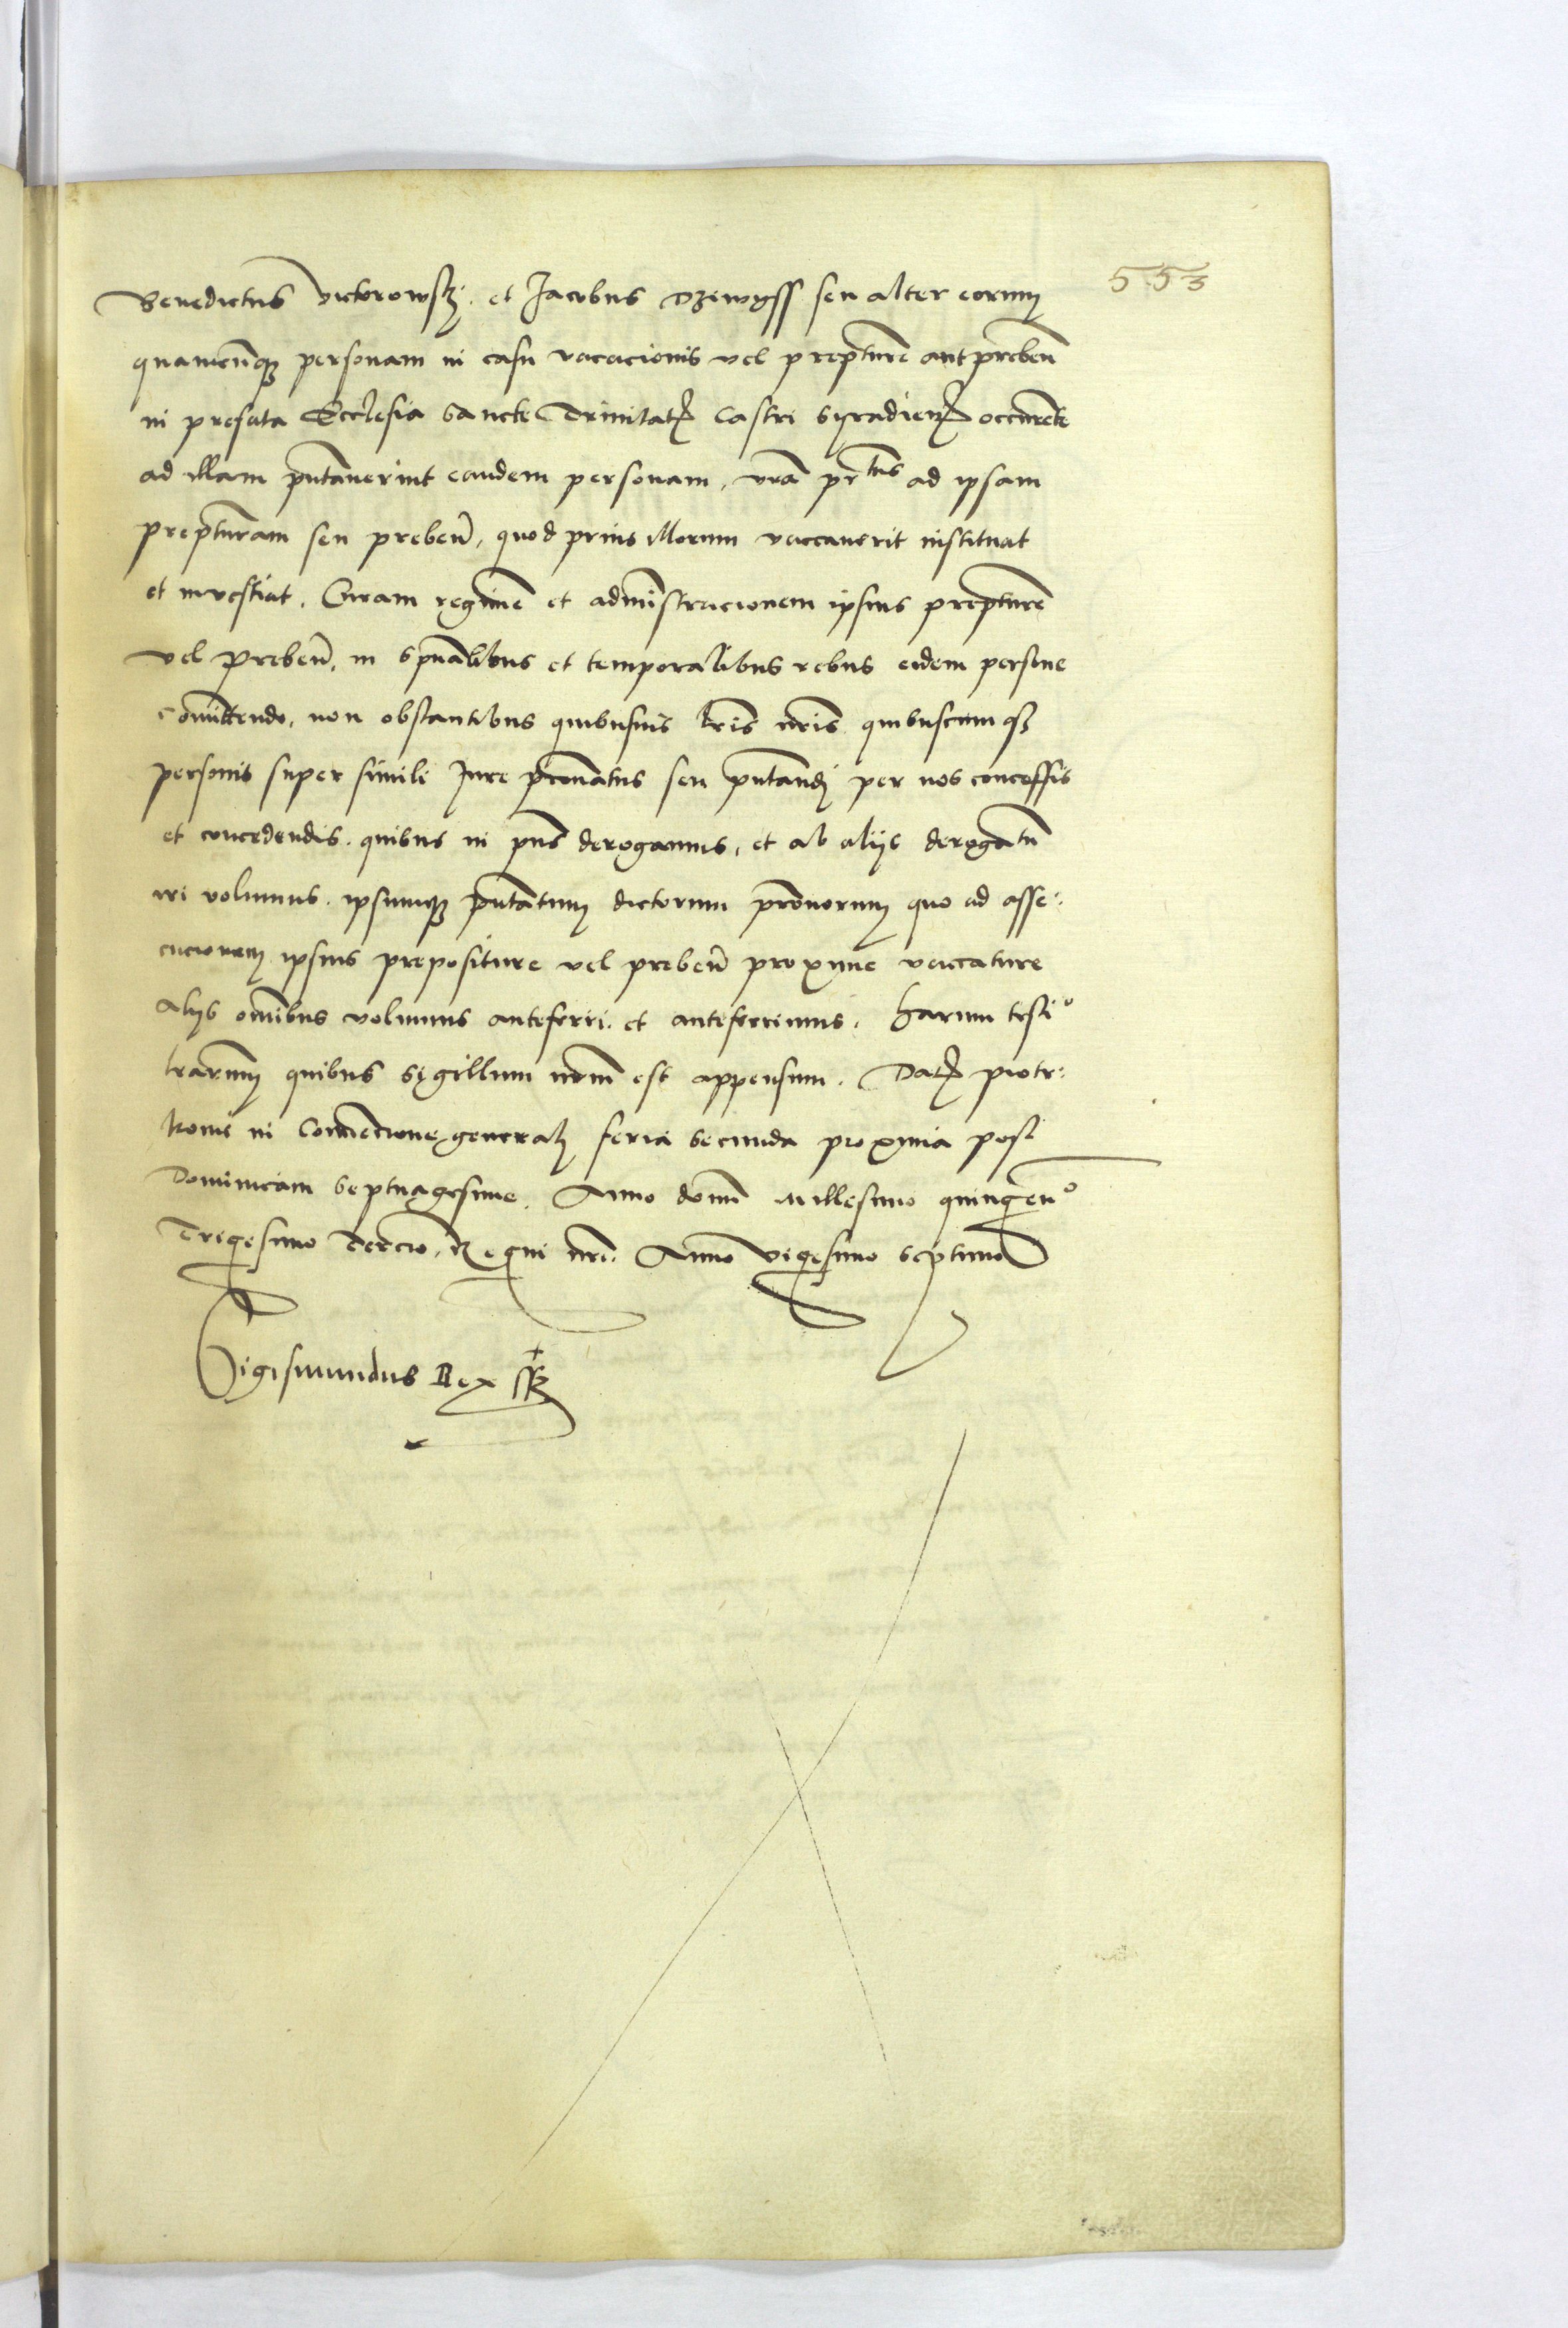 553
Benedictus victorowskj. et Jacobus Dzewyssz seu alter eorum
quamcunque personam in casu vacacionis vel prepture aut preben
in prefata Ecclesia Sancte Trinitatis Castri Syradien occurente
ad illam pntauerint eandem personam, vra prtus ad ipsam
prepturam seu preben, quod prius illorum vaccauerit instituat
et inuestiat. Curam regimen et administracionem ipsius prepture
vel preben, in spualibus et temporalibus rebus eidem persone
comittendo, non obstantibus quibusuis lris nris quibuscumque
personis super simili Jure pronatus seu pntandj per nos concessis
et concedendis. quibus in pns derogamus, et ab aliis derogatum
iri volumus. ipsumque pntatum dictorum pronorum quo ad asse:
cucionem ipsius prepositure vel preben proxime vaccature
Aliis omnibus volumus anteferri. et anteferrimus. Harum testio
lrarum quibus Sigillum nrum est appensum. Dat piotr:
kouie in Conuencione generalj feria Secunda proxima post
Dominicam Septuagesime. Anno domini Millesimo quingeno
Trigesimo Tercio. Regni nri. Anno vigesimo Septimo
Sigismundus Rex sst